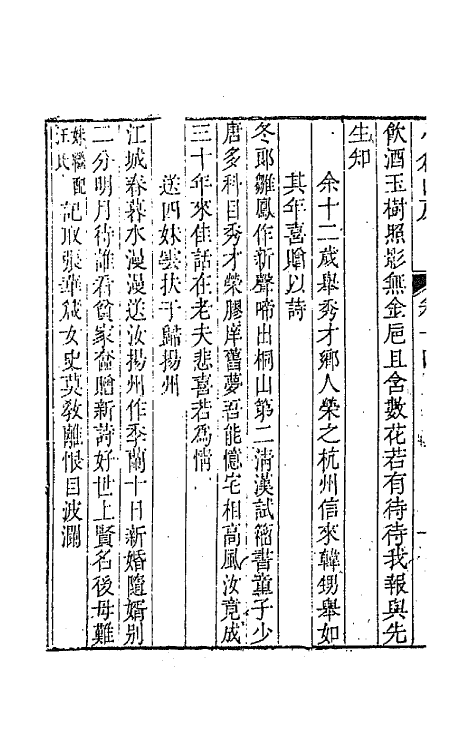 飲酒玉樹照影無金巵且含數花若有待待我報與先
生知
余十二歲舉秀才鄉人榮之杭州信來韓甥舉如
其年喜贈以詩
冬郎雛鳳作新聲啼出桐山第二淸漢試籀書童子少
唐多科目秀才榮膠庠舊夢吾能憶宅相高風汝竟成
三十年來佳話在老夫悲喜若爲情
送四妹雲扶于歸揚州
江城春暮水漫漫送汝揚州作季蘭十日新婚隨婿別
二分明月待誰看貧家奩贈新詩好世上賢名後母難
妹繼配汪氏記取張華箴女史莫敎離恨目波瀾